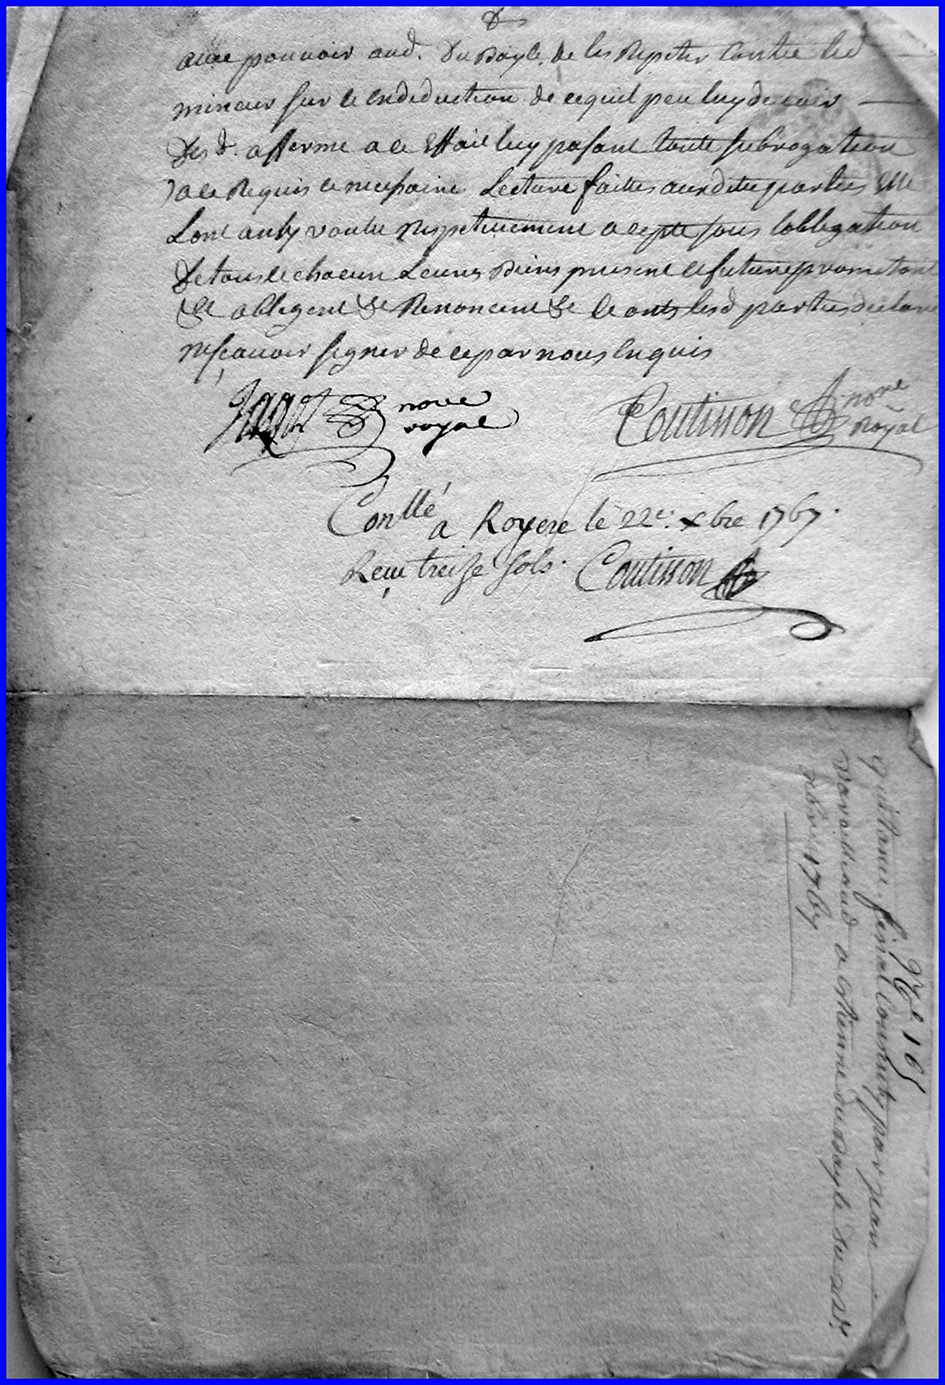 avec pouvoir aud. Du Bayle de les Repeter contre led
mineur sur et en deduction de ce quil peu luy devoir
Des d. afferme a ce Effait luy pasant toute subrogation
a ce Requis et necessaire Lecture faittes ausdittes parties
Lont ainsy voulu Respetivement acepte sous lobligation
De tous et chacun Leurs Biens present et future prometant
&c obligent &c Renoncent &c et onts lesd parties declaré
ne sçavoir signer de ce par nous Enquis
Jagot nore royal
Coutisson nore Royal
Conllé a Royere le 22e. xbre 1767.
Reçu treise sols. Coutisson
quittance final Consenty par jean
varailhaud a etienne du bayle du 22e
xbre 1767
165